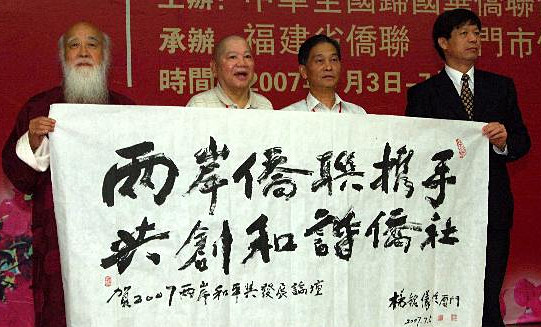 主辦：中華全國歸國華僑聯
承辦：福建省僑聯 門市
時間：2007 月3日-7
兩岸僑聯携手
共創和諧僑社
賀2007兩岸和平共發展論壇
2007.7.5